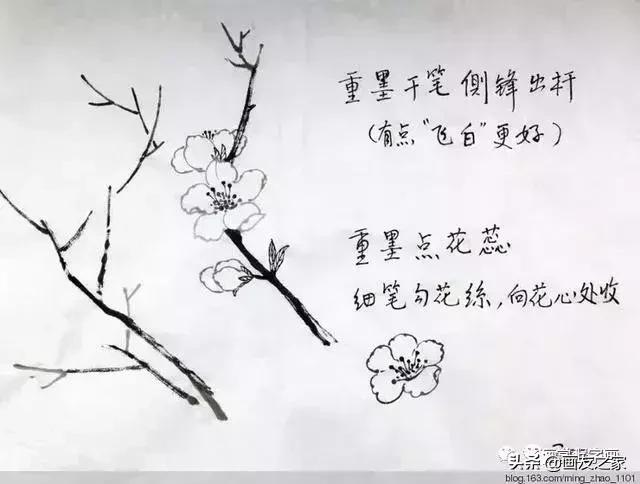 重墨干笔侧锋出杆
（有点“飞白”更好）
重墨点花蕊
细笔勾花絲，向花心处收
头条@画友之家
blog.163.com/ming_zhao_1101